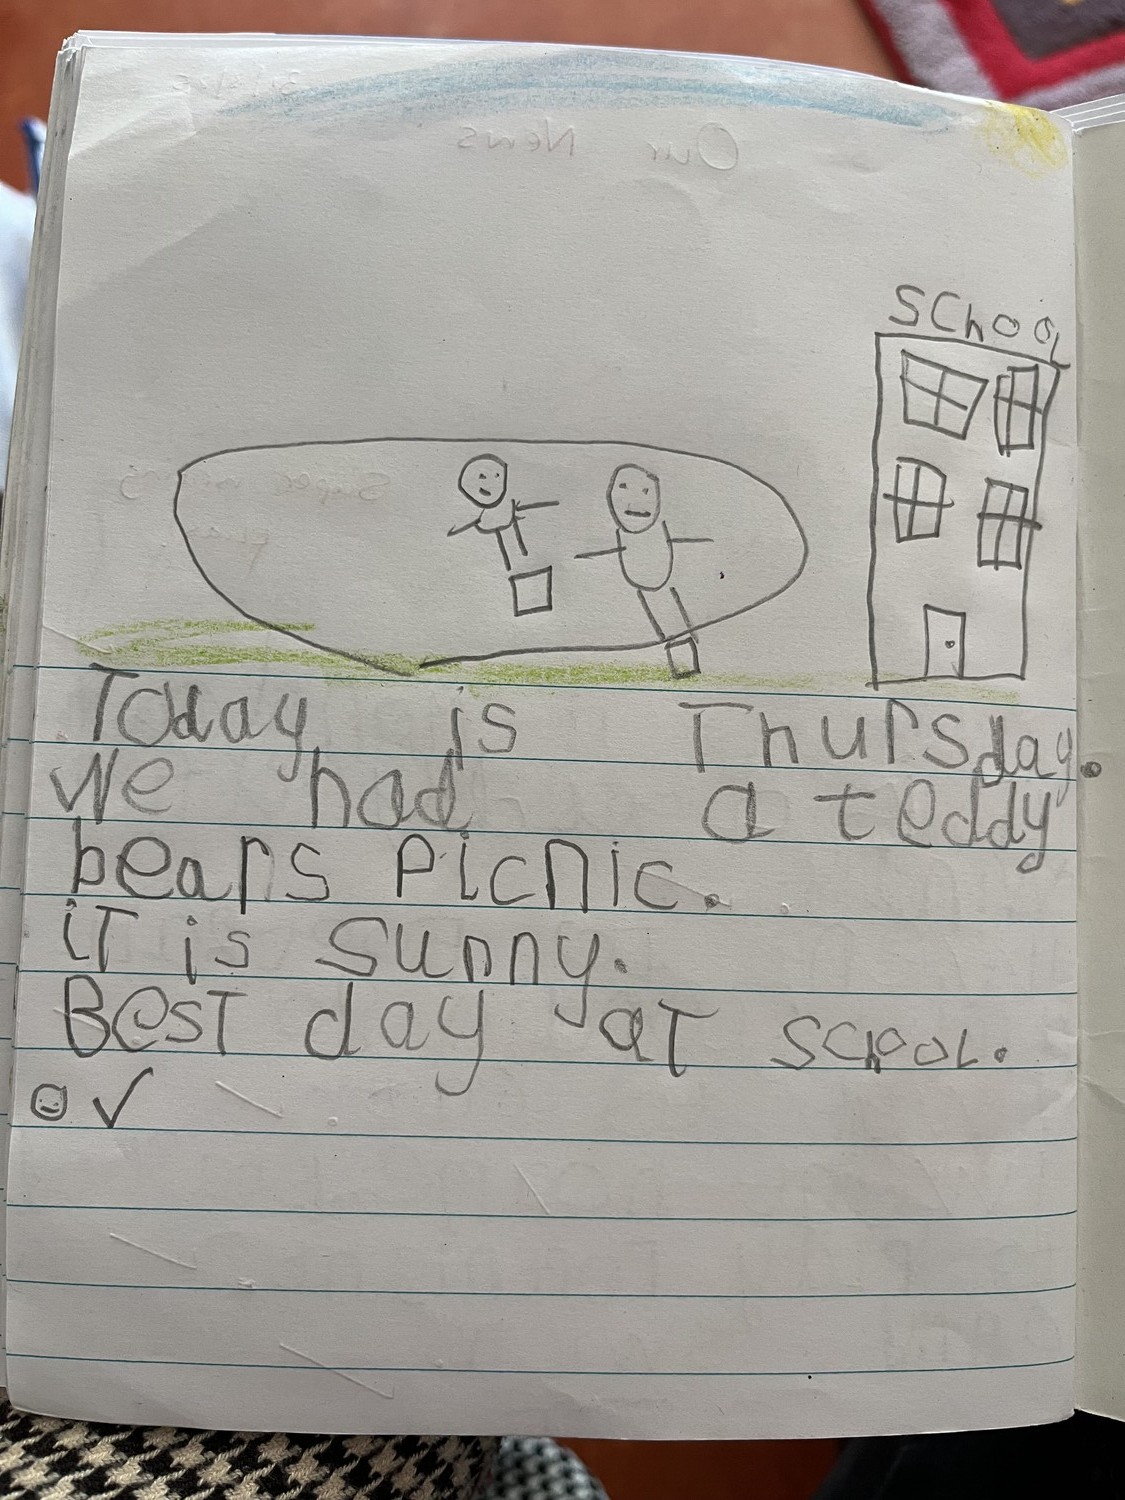 SChOOL
Today is Thursday.
We had a teddy
bears Picnic.
iT is sunny.
BesT day aT SchooL.